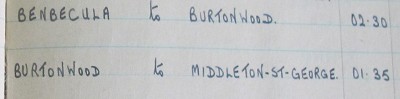 BENBECULA to BURTONWOOD. 02.30
BURTONWOOD to MIDDLETON-ST-GEORGE. 01.35